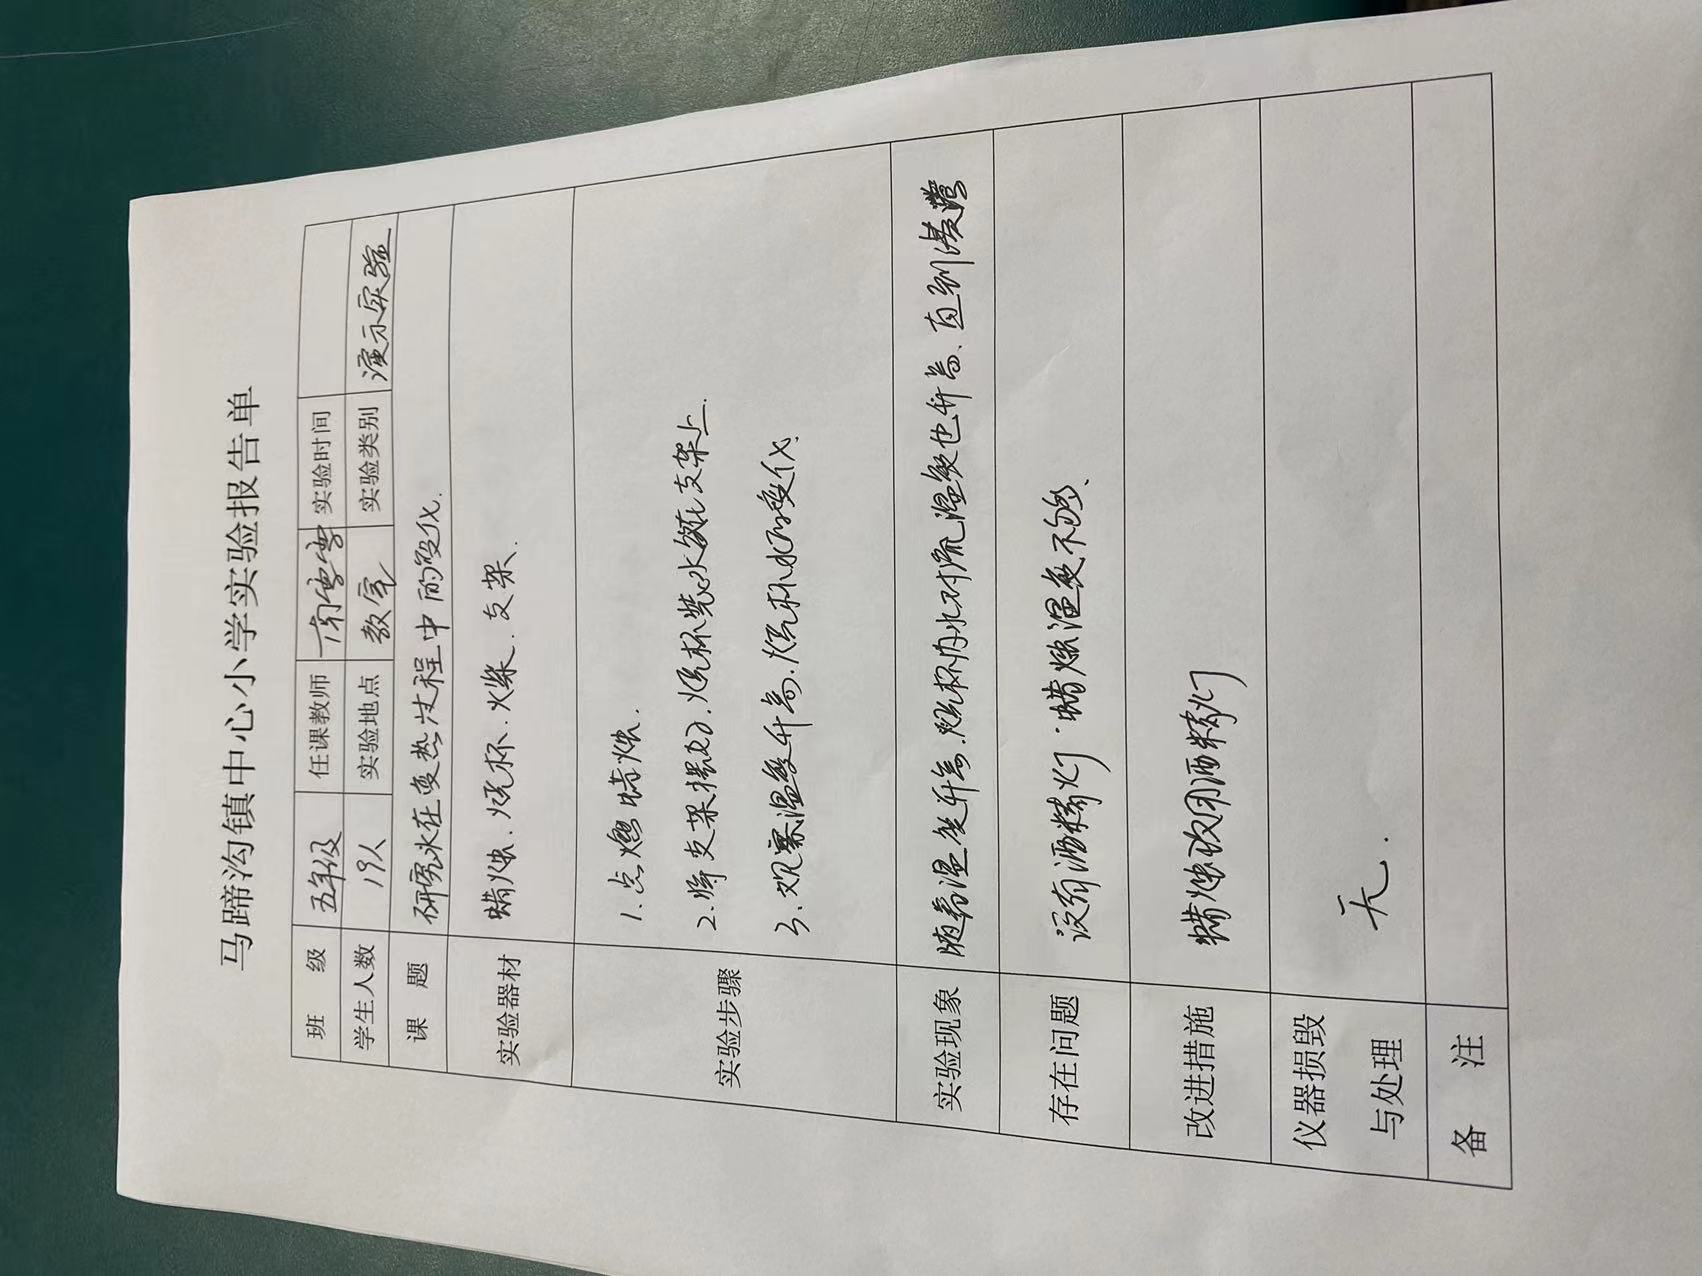 马蹄沟镇中心小学实验报告单
班 级 五年级 任课教师 实验时间
学生人数 19人 实验地点 教室 实验类别 演示实验
课 题 研究水在变热过程中的变化.
实验器材 蜡烛.烧杯.火柴.支架.
实验步骤
1.点燃蜡烛.
2.将支架摆好.烧杯装水放在支架上.
3.观察温度升高.烧杯水的变化.
实验现象 随着温度升高.烧杯内水对流温度也升高、直到
存在问题 没有酒精灯.蜡燃温度不够、
改进措施 蜡烛改用酒精灯
仪器损毁
与处理 无.
备 注